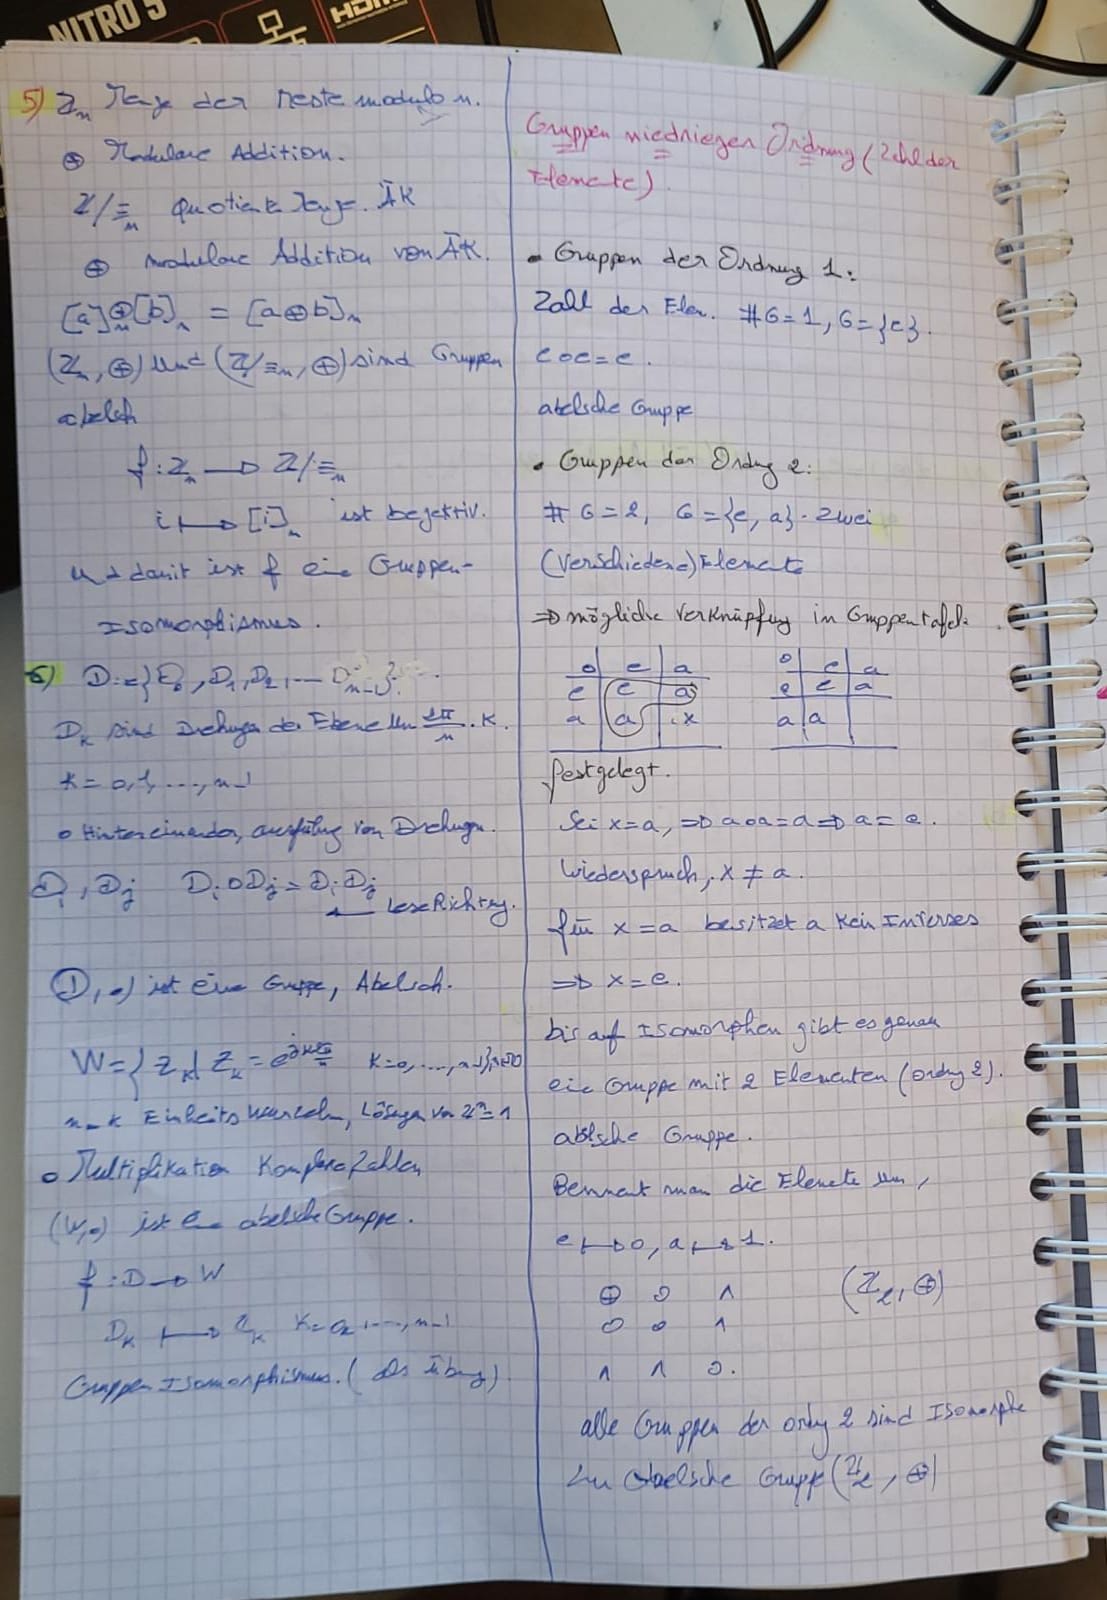 NITRO 5
HDMI
5) Z_n Menge der Reste modulo n.
⊕ Modulare Addition.
Z/≡_n Quotientenmenge. ÄK
⊕ modulare Addition von ÄK.
[a]_n ⊕ [b]_n = [a⊕b]_n
(Z_n, ⊕) und (Z/≡_n, ⊕) sind Gruppen
abelsch
f: Z_n → Z/≡_n
i ↦ [i]_n ist bejektiv.
und damit ist f eine Gruppen-
Isomorphismus.
6) D:={D_0, D_1, D_2, ... D_{n-1}}.
D_k sind Drehungen der Ebene um 2π/n · K.
K = 0, 1, ..., n-1
∘ Hintereinander, ausführung von Drehungen.
D_i, D_j D_i∘D_j = D_i D_j
← Lese Richtung.
(D, ∘) ist eine Gruppe, Abelsch.
W={ Z_k | Z_k = K=0, ..., n-1},
n-k Einheits Wurzeln, Lösungen von Z^n = 1
∘ Multiplikation Komplexe Zahlen
(W, ∘) ist eine abelsche Gruppe.
f: D → W
D_k ↦ Z_k K=0, ..., n-1
Gruppen Isomorphismus. (als übung)
Gruppen niedriegen Ordnung (Zahl der
Elemente).
• Gruppen der Ordnung 1:
Zahl der Elem. #G=1, G={e}.
e∘e=e.
abelsche Gruppe
• Gruppen der Ordnung 2:
# G=2, G={e, a}. Zwei
(Verschiedene) Elemente
⇒ mögliche Verknüpfung in Gruppentafel.
∘ e a ∘ e a
e e a e e a
a a x a a
festgelegt.
Sei x=a, ⇒ a∘a=a ⇒ a=e.
Wiederspruch, x ≠ a.
für x=a besitzet a kein Inverses
⇒ x=e.
bis auf Isomorphen gibt es genau
eine Gruppe mit 2 Elementen (ordng 2).
abelsche Gruppe.
Bennent man die Elemente um,
e ↦ 0, a ↦ 1.
⊕ 0 1 (Z_2, ⊕)
0 0 1
1 1 0.
alle Gruppen der ordng 2 sind Isomorphe
zu abelsche Gruppe (Z_2, ⊕)